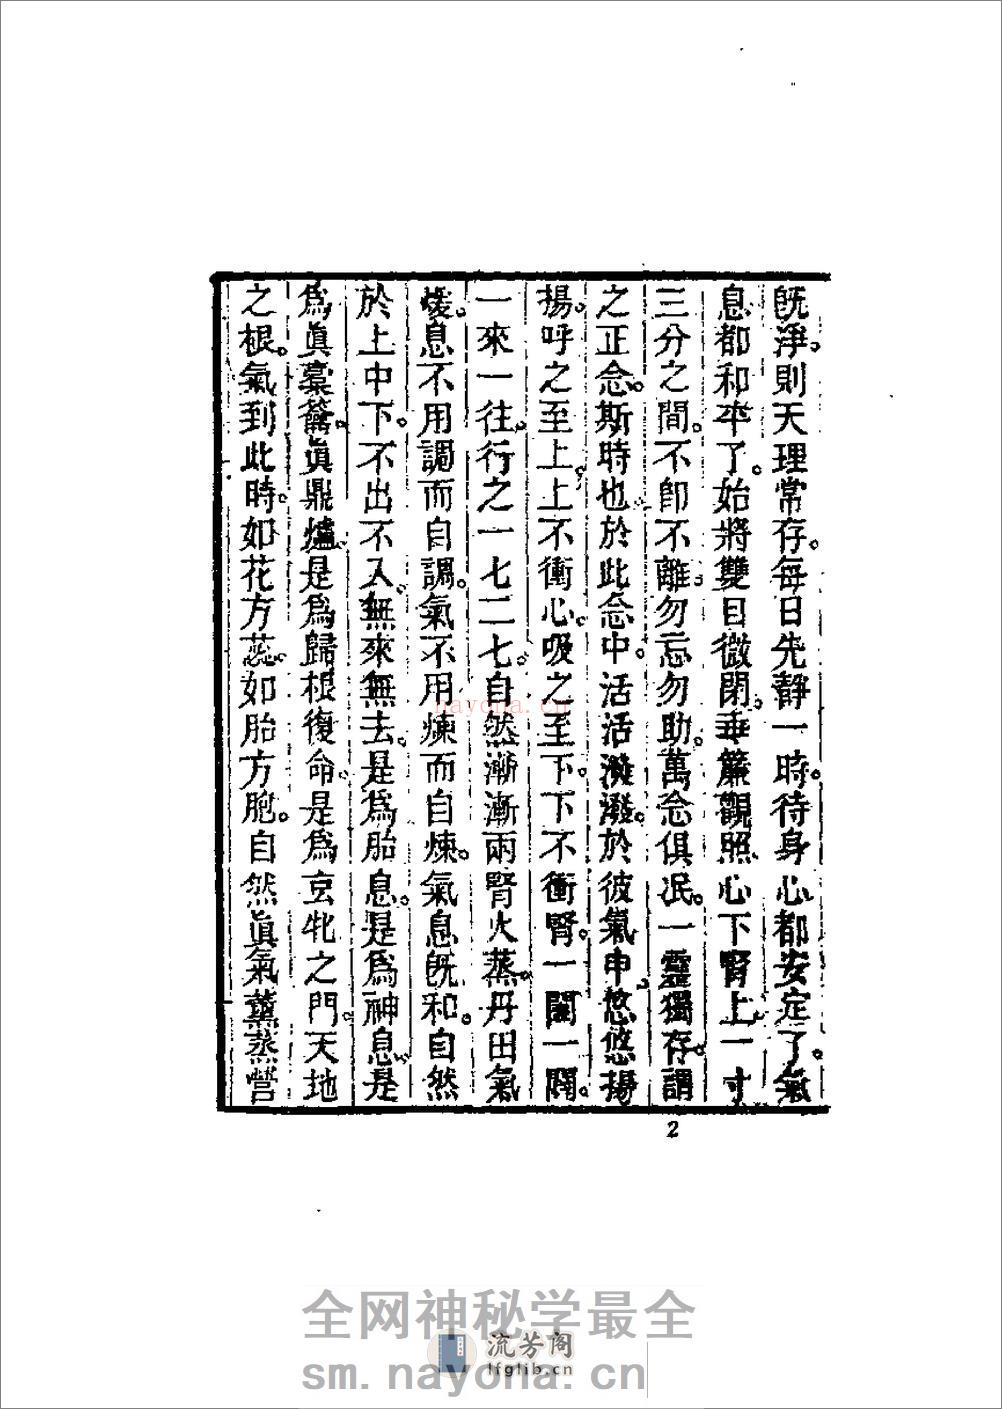 旣淨。則天理常存。每日先靜一時。待身心都安定了。氣
息都和平了。始將雙目微閉。垂簾觀照。心下腎上一寸
三分之間。不卽不離。勿忘勿助。萬念俱泯。一靈獨存。謂
之正念。斯時也。於此念中。活活潑潑。於彼氣中。悠悠揚
揚。呼之至上。上不衝心。吸之至下。下不衝腎。一闔一闢。
一來一往。行之一七二七。自然漸漸兩腎火蒸。丹田氣
煖。息不用調而自調。氣不用煉而自煉。氣息旣和。自然
於上中下。不出不入。無來無去。是爲胎息。是爲神息。是
爲眞橐籥。眞鼎爐。是爲歸根復命。是爲玄牝之門。天地
之根。氣到此時。如花方蕊。如胎方胞。自然眞氣薰蒸營
2
nayona.cn
全网神秘学最全
流芳阁
lfglib.cn
sm.nayona.cn